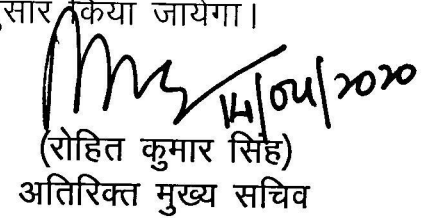 सार किया जायेगा।
14/04/2020
(रोहित कुमार सिंह)
अतिरिक्त मुख्य सचिव